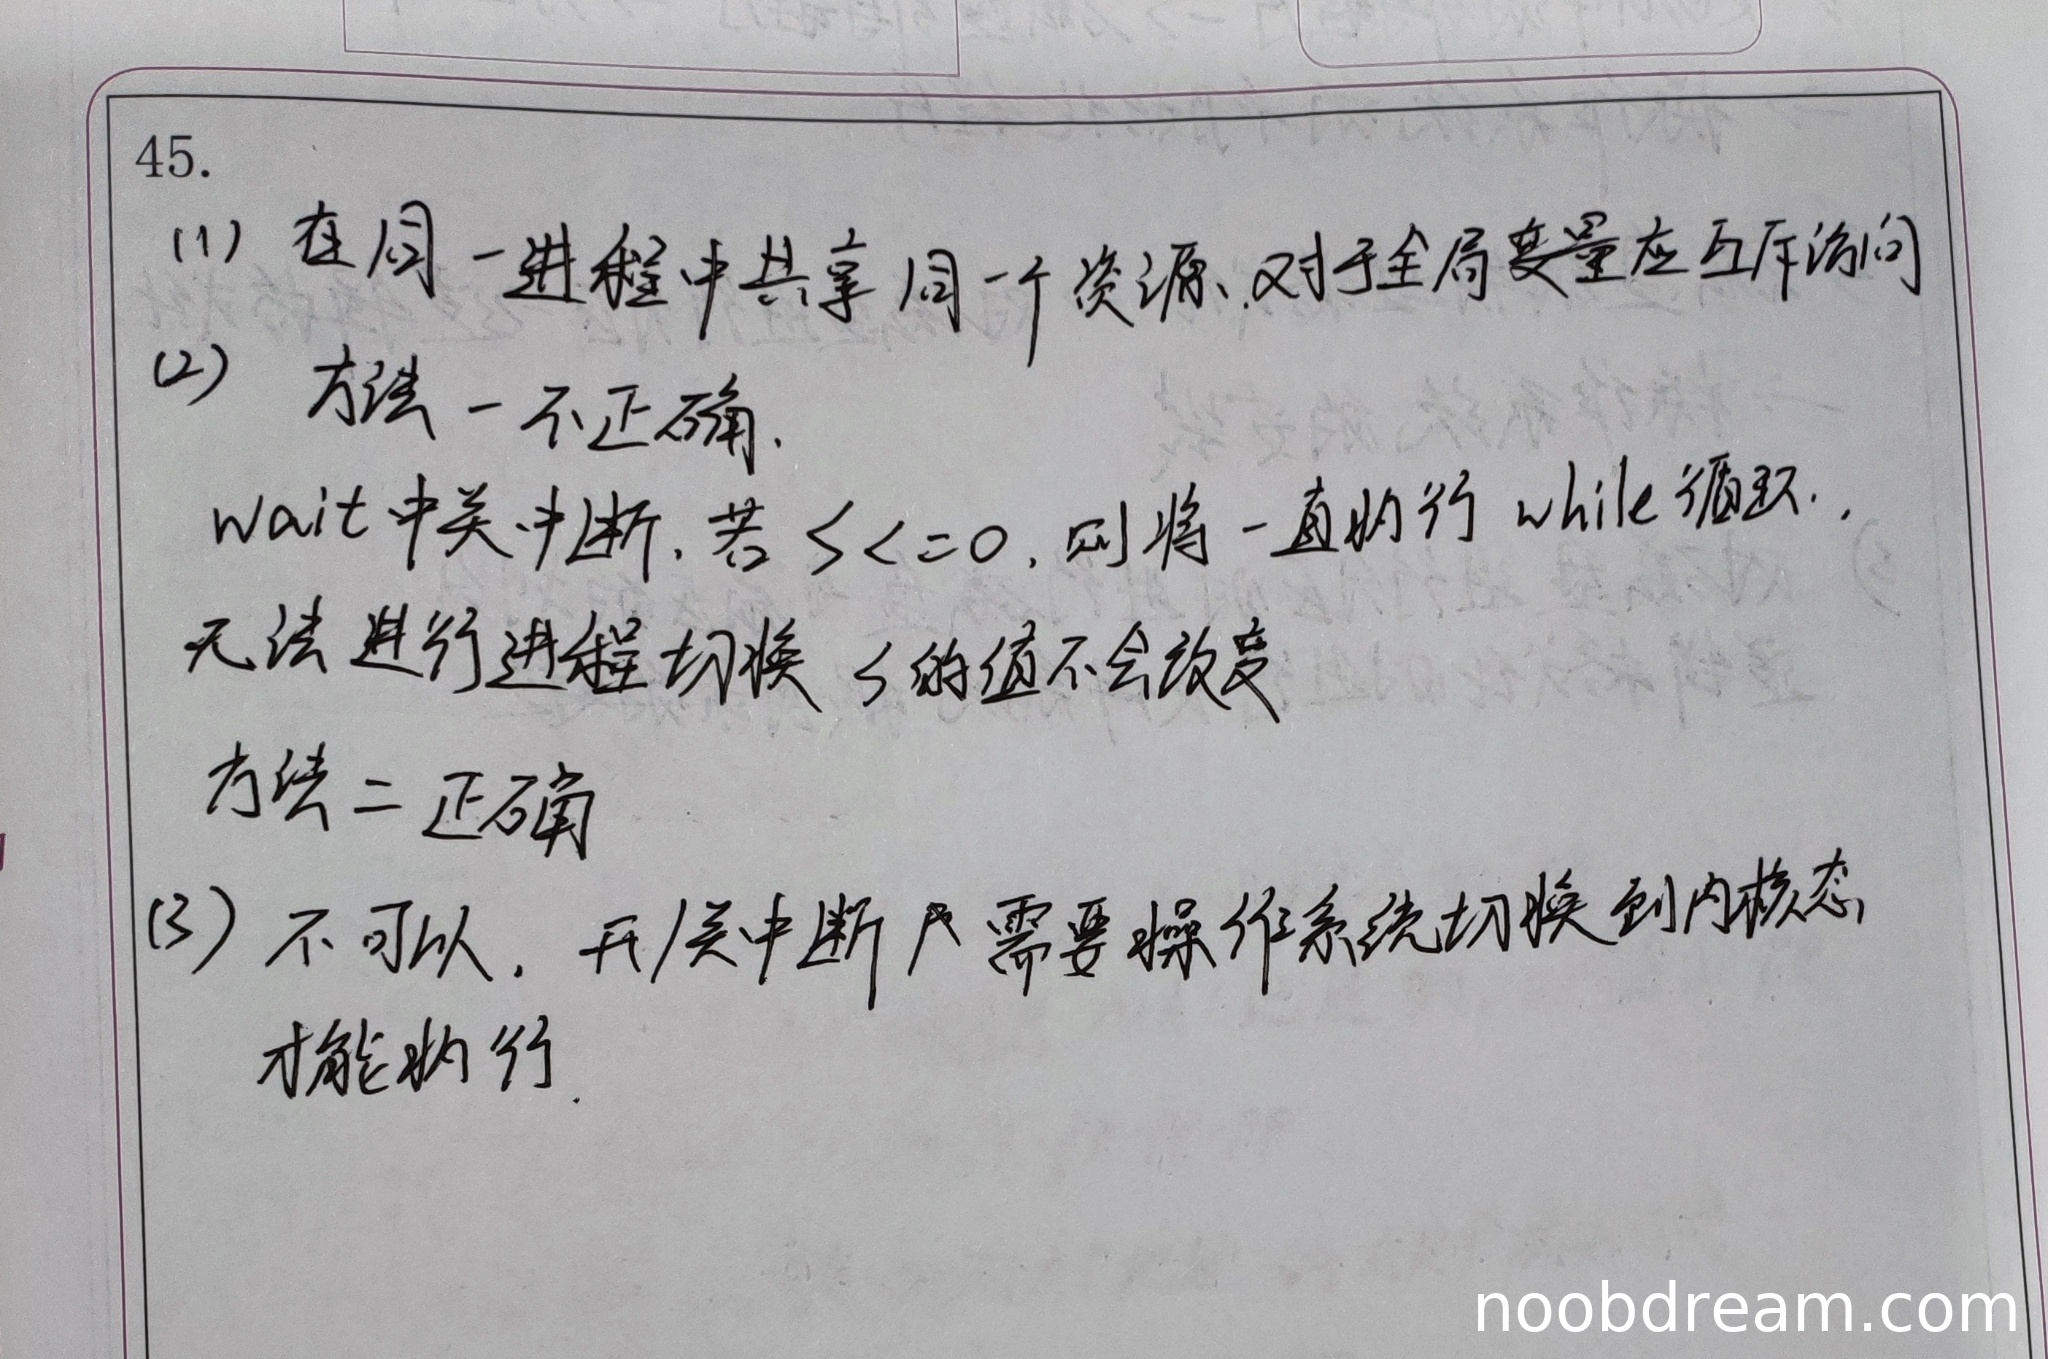 45.
(1) 在同一进程中共享同一个资源、对于全局变量应互斥访问
(2) 方法一不正确.
wait中关中断.若S<=0,则将一直执行while循环.
无法进行进程切换 S的值不会改变
方法二正确
(3) 不可以.开/关中断 需要操作系统切换到内核态
才能执行.
noobdream.com